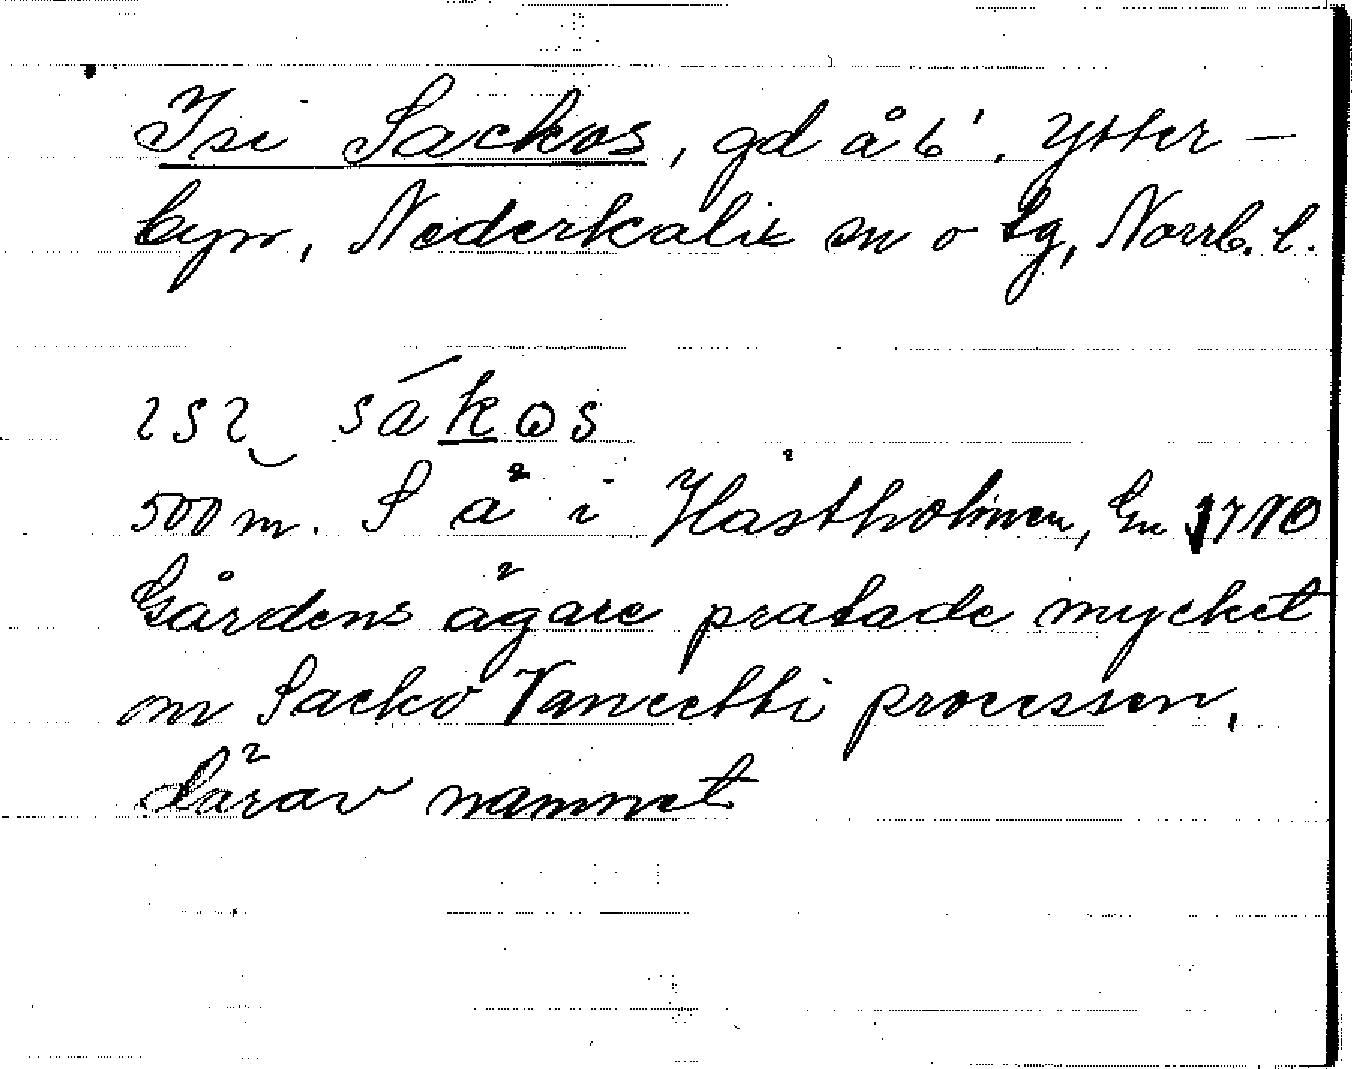 Isi Sackos, gd å 6¹. Ytter-
byn, Nederkalix sn o tg, Norrb. l.
ısı sákos
500 m. S ä i Hästholmen, En 1710
Gårdens ägare pratade mycket
om Sacko Vancetti processen,
därav namnet